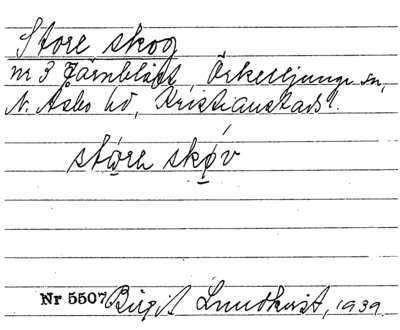 Store skog
nr 3 Järnbläst, Örkelljunga sn,
N. Åsbo hd, Kristianstads l.
störe skóv
Nr 5507 Birgit Lundkvist, 1939.